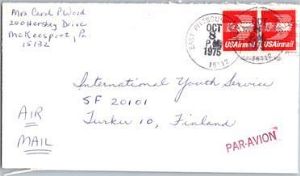 Mrs Carol P Ward
200 Hershey Drive
McKeesport, Pa
15132
EAST PITTSBURGH
OCT
8
PM
1975
15112
USAirmail
USAirmail
International Youth Service
SF 20101
Turku 10, Finland
AIR
MAIL
PAR-AVION